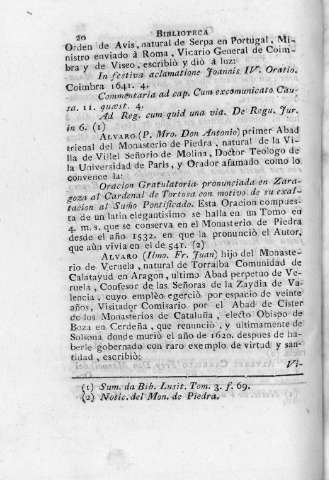 20 BIBLIOTECA
Orden de Avis, natural de Serpa en Portugal, Mi-
nistro enviado á Roma, Vicario General de Coim-
bra y de Viseo, escribió y dió á luz:
In festiva aclamatione Joannis IV. Oratio.
Coimbra 1641. 4.
Commentaria ad cap. Cum excomunicato Cau-
sa. 11. quæst. 4.
Ad Reg. cum quid una via. De Regu. Jur.
in 6. (1)
ALVARO (P. Mro. Don Antonio) primer Abad
trienal del Monasterio de Piedra, natural de la Vi-
lla de Villel Señorio de Molina, Doctor Teologo de
la Universidad de Paris, y Orador afamado como lo
convence la:
Oracion Gratulatoria pronunciada en Zara-
goza al Cardenal de Tortosa con motivo de su exal-
tacion al Sumo Pontificado. Esta Oracion compues-
ta de un latin elegantisimo se halla en un Tomo en
4. m. s. que se conserva en el Monasterio de Piedra
desde el año 1532. en que la pronunció el Autor,
que aún vivia en el de 541. (2)
ALVARO (Ilmo. Fr. Juan) hijo del Monaste-
rio de Veruela, natural de Torralba Comunidad de
Calatayud en Aragon, ultimo Abad perpetuo de Ve-
ruela, Confesor de las Señoras de la Zaydia de Va-
lencia, cuyo empleo egerció por espacio de veinte
años, Visitador Comisario por el Abad de Cister
de los Monasterios de Cataluña, electo Obispo de
Boza en Cerdeña, que renunció, y ultimamente de
Solsona donde murió el año de 1620. despues de ha-
berle gobernado con raro exemplo de virtud y san-
tidad, escribió:
Vi-
(1) Sum. da Bib. Lusit. Tom. 3. f. 69.
(2) Notic. del Mon. de Piedra.